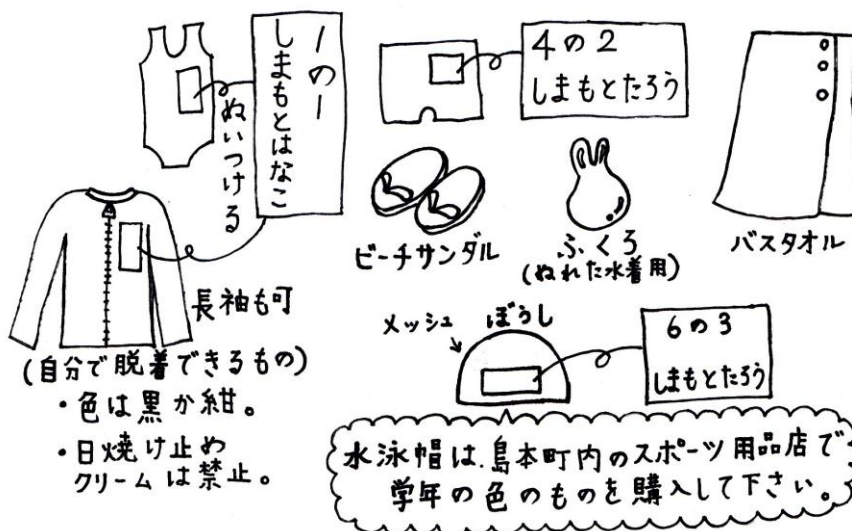 1の1
しまもとはなこ
ぬいつける
4の2
しまもとたろう
ビーチサンダル
ふくろ
(ぬれた水着用)
バスタオル
長袖も可
(自分で脱着できるもの)
・色は黒か紺。
・日焼け止め
クリームは禁止。
メッシュ
ぼうし
6の3
しまもとたろう
水泳帽は、島本町内のスポーツ用品店で
学年の色のものを購入して下さい。